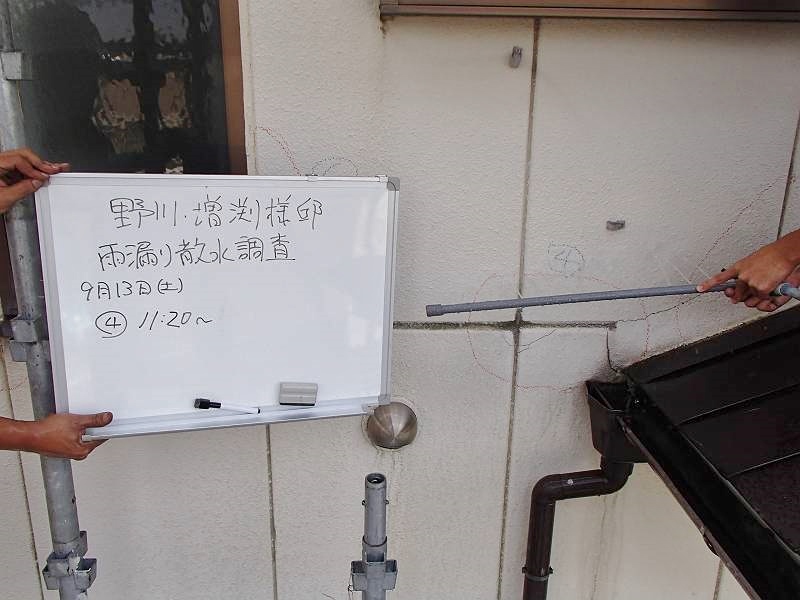 野川・増渕様邸
雨漏り散水調査
9月13日(土)
④ 11:20~
④